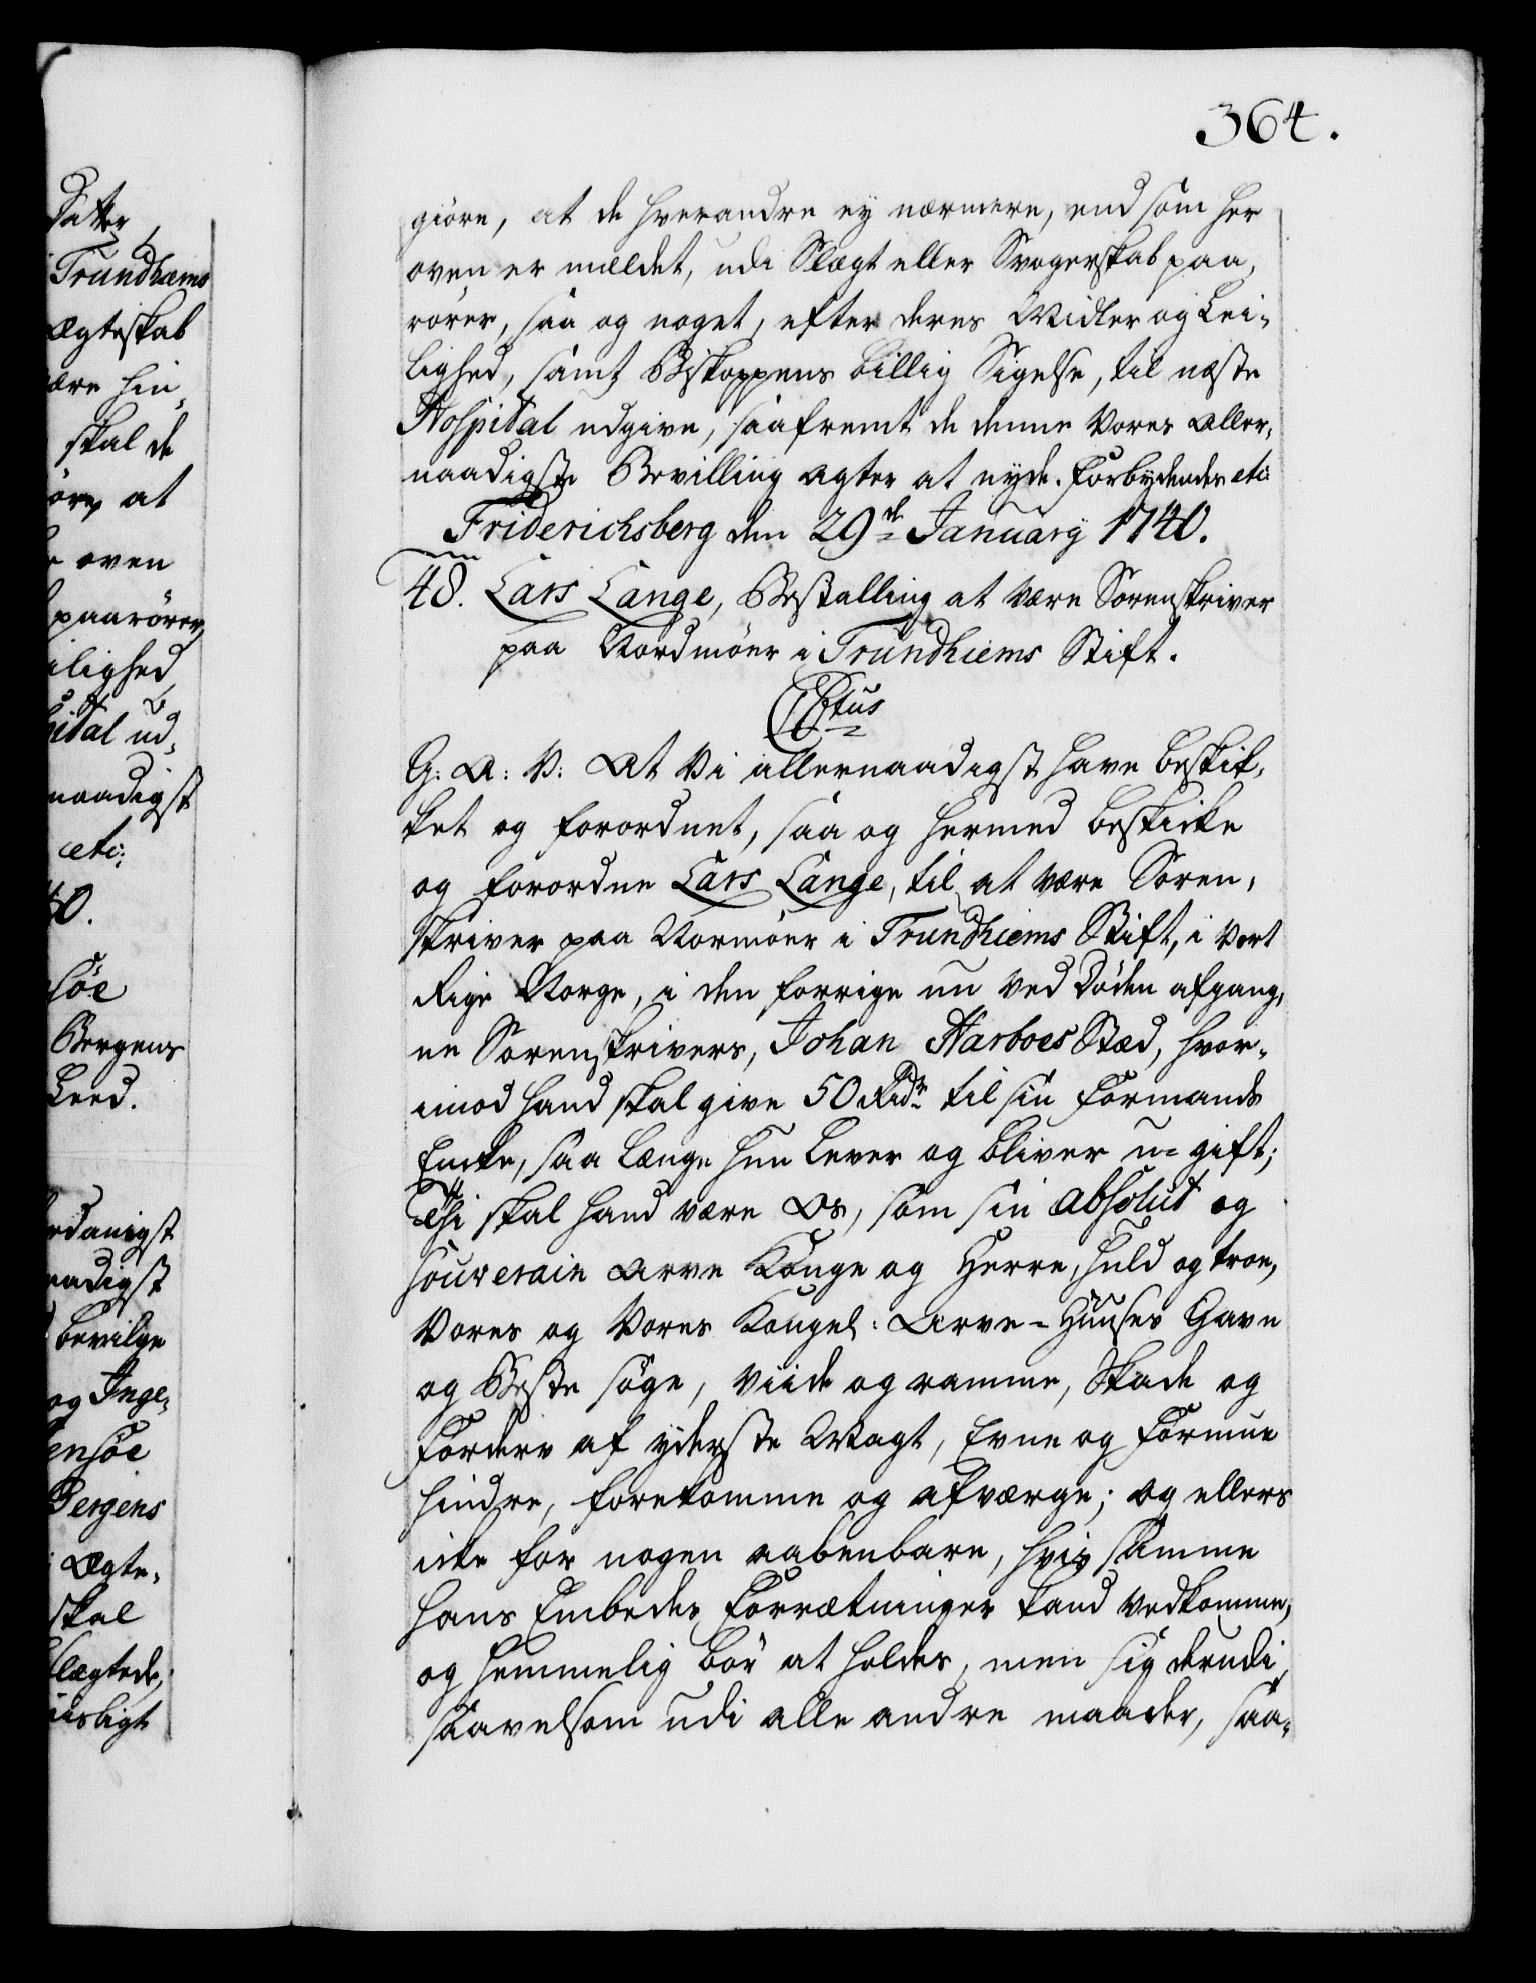 364.
giøre, at de hverandre ey nærmere, end som her
oven er meldet, udi Slægt eller Svogerskab paa,
rører, saa og noget, efter deres Midler og Lei,
lighed, samt Biskoppens billig Sigelse, til næste
Hospital udgive, saafremt de denne Vores Aller,
naadigste Bevilling agter at nyde. Forbydendes etc:
Friderichsberg den 29de January 1740.
48. Lars Lange, Bestalling at være Sorenskriver
paa Nordmöer i Trundhiems Stift.
C6tus
G: A: V: At Vi allernaadigst have beskik,
ket og forordnet, saa og hermed beskicke
og forordne Lars Lange, til at være Soren,
skriver paa Normöer i Trundhiems Stift, i Vort
Rige Norge, i den forrige nu ved Døden afgang,
ne Sorenskrivers, Johan Harboes Stæd, hvor,
imod hand skal give 50 Rdr til sin Formands
Encke, saa længe hun lever og bliver u-gift;
Thi skal hand være Os, som sin absolut og
souverain Arve Konge og Herre, huld og troe,
Vores og Vores Kongel: Arve-Huuses Gavn
og Beste søge, viide og ramme, Skade og
Forderv af yderste Magt, Evne og Formue
hindre, forekomme og afværge; og ellers
icke for nogen aabenbare, hvis samme
hans Embedes Forrætninger kand vedkomme,
og hemmelig bör at holdes, men sig derudi,
saavelsom udi alle andre maader, saa-
Datter,
Trundhiems
Ægteskab
være hin,
skal de
øre, at
oven
paarører,
ilighed
pital ud,
naadigst
etc:
40.
søe
Bergens
Leed.
rdanigst
aadigst
bevilge
og Inge,
ensøe
Bergens
Ægte,
skal
slægtede,
iisligt